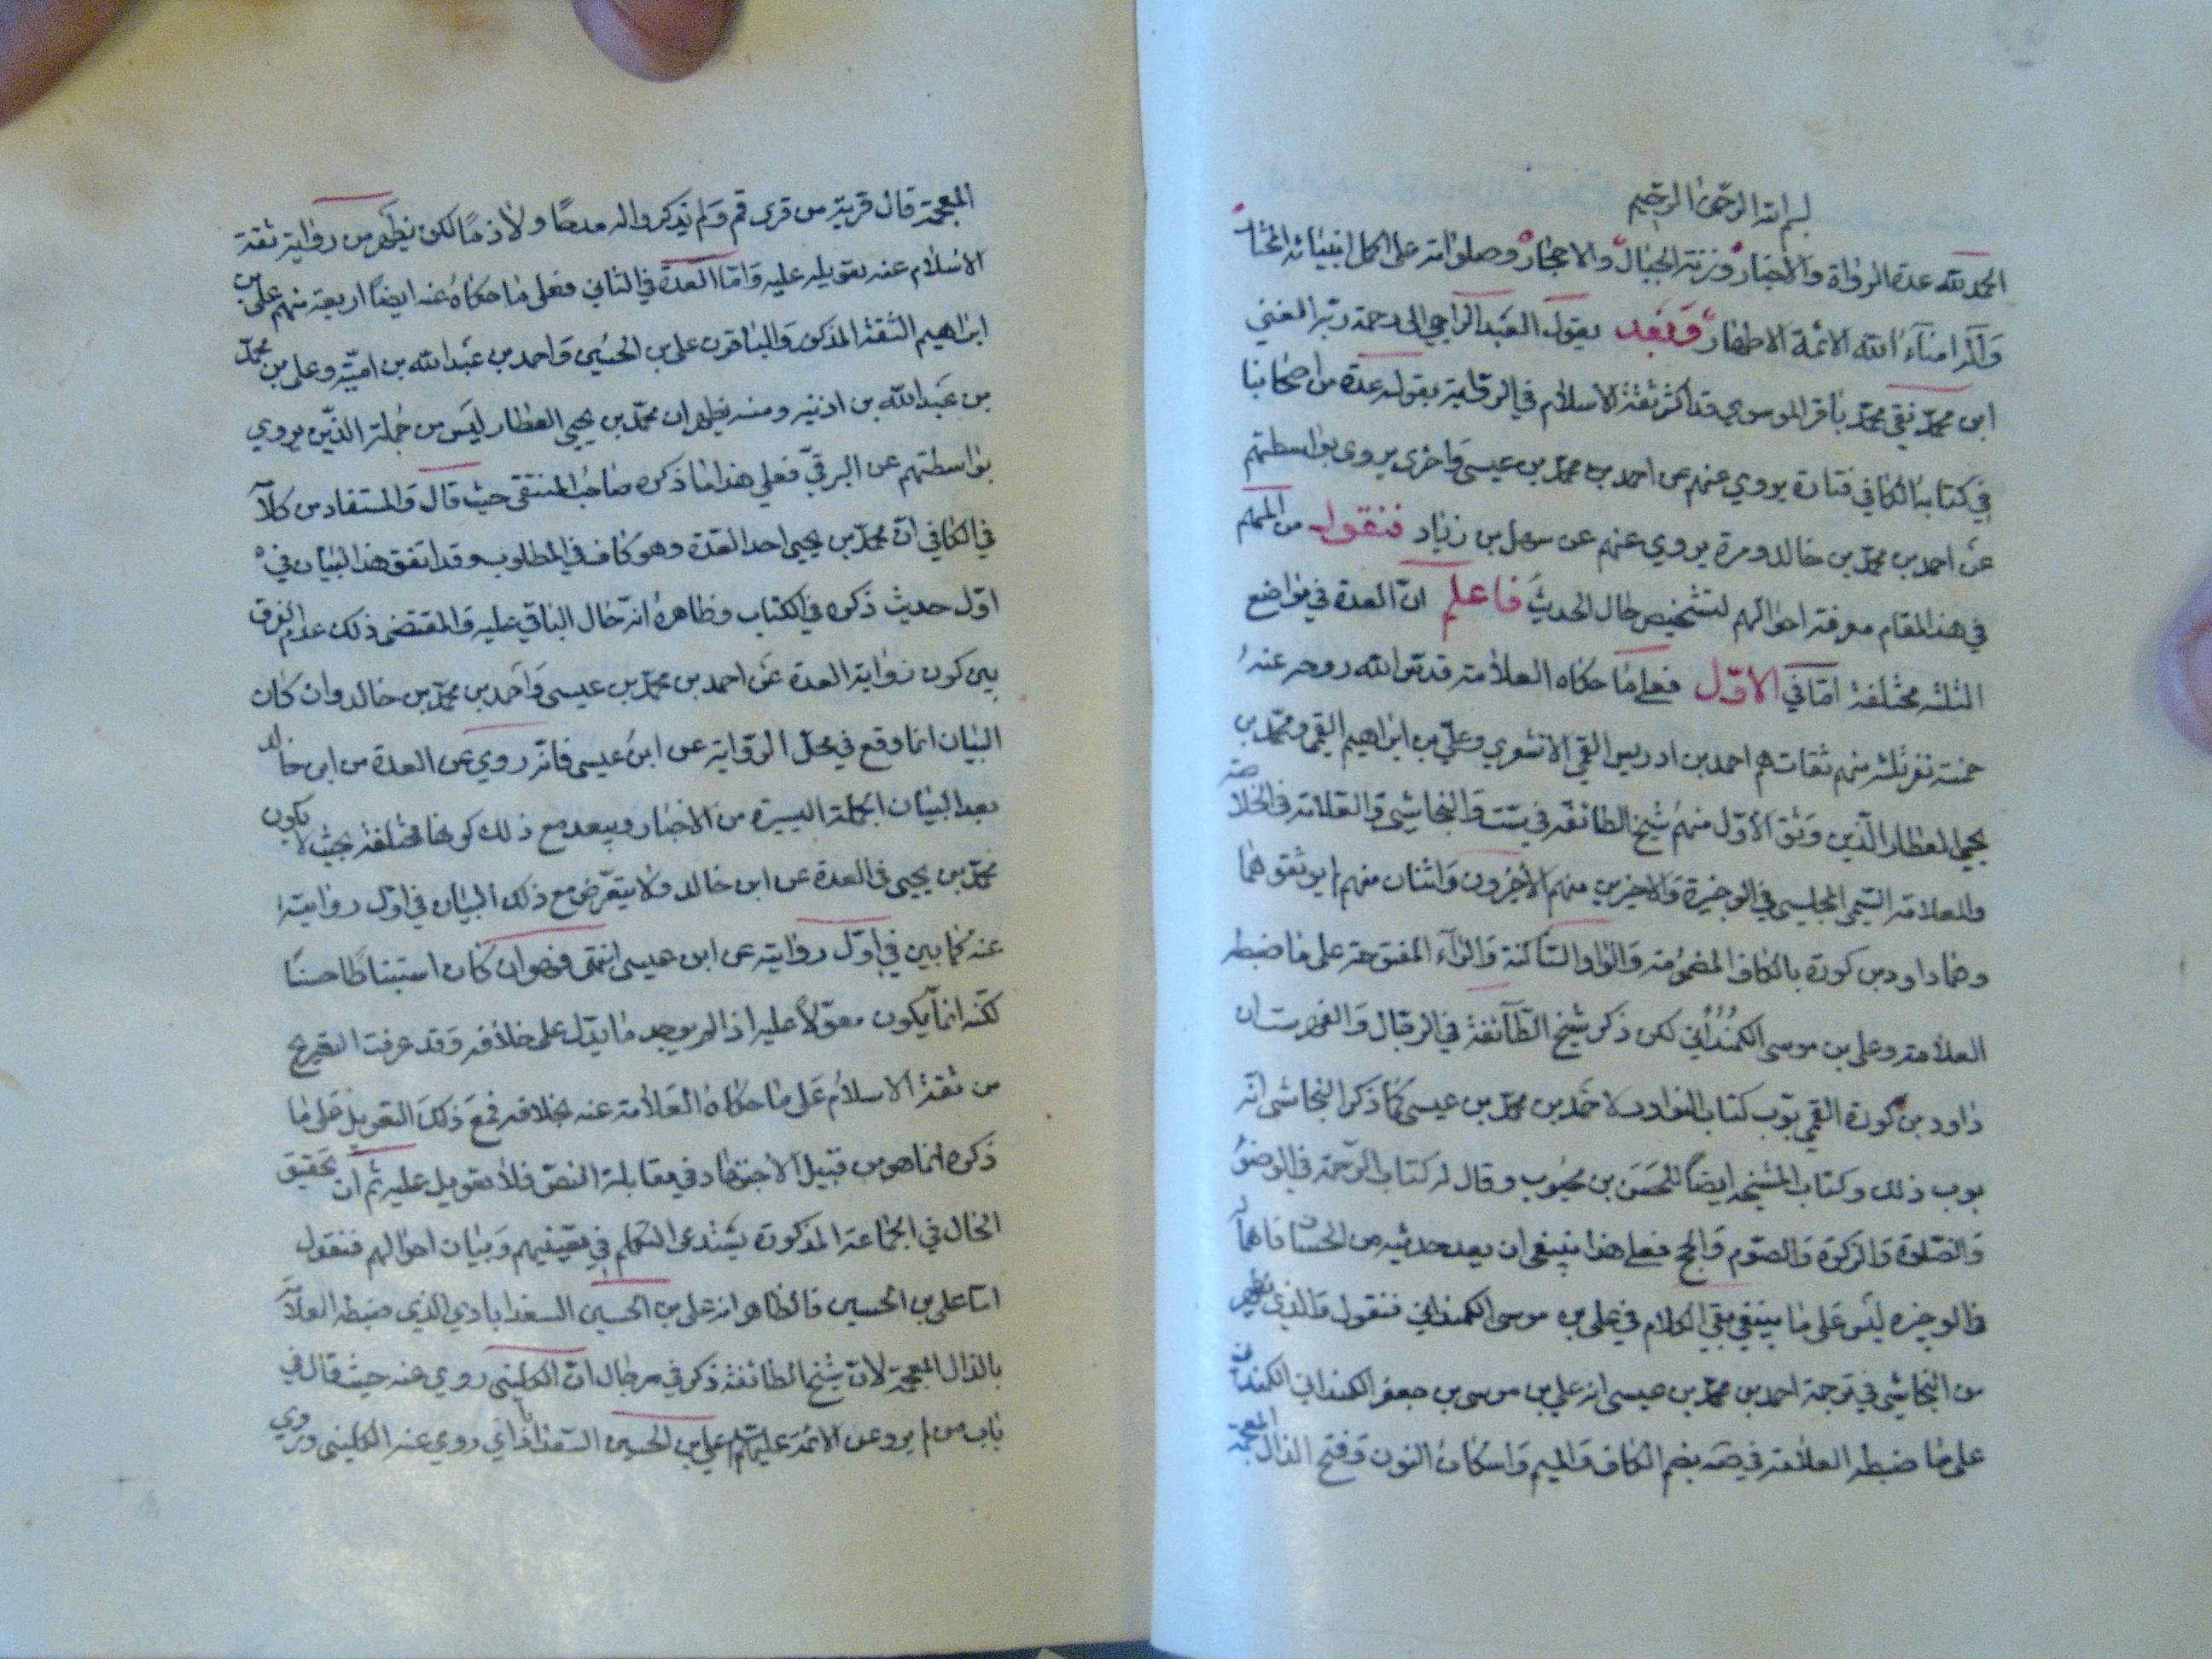 بسم الله الرحمن الرحيم
الحمد لله عدة الرواة والاخبار وزنة الجبال والاحجار وصلواته على اكمل انبيائه المختار
وآله امناء الله الائمة الاطهار وبعد يقول العبد الراجي الى رحمة ربه الغني
ابن محمد نقي محمد باقر الموسوي قد اكثر ثقة الاسلام في الرواية بقوله عدة من اصحابنا
في كتابه الكافي فتارة يروي عنهم عن احمد بن محمد بن عيسى واخرى يروى بواسطتهم
عن احمد بن محمد بن خالد ومرة يروي عنهم عن سهل بن زياد فنقول من المهم
في هذا المقام معرفة احوالهم لتشخيص حال الحديث فاعلم ان العدة في مواضع
الثلثه مختلفة اما في الاول فعلى ما حكاه العلامة قدس الله روحه عنه
خمسة نفر ثلثه منهم ثقات هم احمد بن ادريس القمي الاشعري وعلي بن ابراهيم القمي ومحمد بن
يحيى العطار الذين وثق الاول منهم شيخ الطائفة في ست والنجاشي والعلامة في الخلاصة
والعلامة السمي المجلسي في الوجيزة والاخيرين منهم الأخرون واثنان منهم لم يوثقوهما
وهما داود بن كورة بالكاف المضمومة والواو الساكنة والراء المفتوحة على ما ضبطه
العلامة وعلي بن موسى الكمنداني لكن ذكر شيخ الطائفة في الرجال والفهرست ان
داود بن كورة القمي بوب كتاب النوادر لاحمد بن محمد بن عيسى كما ذكر النجاشي انه
بوب ذلك وكتاب المشيخه ايضا للحسن بن محبوب وقال له كتاب الرحمة في الوضوء
والصلوة والزكوة والصوم والحج فعلى هذا ينبغي ان يعد حديثه من الحسان فاهماله
في الوجيزه ليس على ما ينبغي بقي الكلام في علي بن موسى الكمنداني فنقول والذي يظهر
من النجاشي في ترجمة احمد بن محمد بن عيسى انه علي بن موسى بن جعفر الكمنداني الكمندان
على ما ضبطه العلامة في صه بضم الكاف والميم واسكان النون وفتح الذال المعجمة
المعجمة قال قرية من قرى قم ولم يذكروا له مدحا ولا ذما لكن يظهر من رواية ثقة
الاسلام عنه تعويله عليه واما العدة في الثاني فعلى ما حكاه عنه ايضا اربعة منهم علي بن
ابراهيم الثقة المذكور والباقون علي بن الحسين واحمد بن عبد الله بن اميه وعلي بن محمد
بن عبد الله بن اذنيه ومنه يظهر ان محمد بن يحيى العطار ليس من جملة الذين يروي
بواسطتهم عن البرقي فعلى هذا ما ذكره صاحب المنتقى حيث قال والمستفاد من كلامه
في الكافي ان محمد بن يحيى احد العدة وهو كاف في المطلوب وقد اتفق هذا البيان في
اول حديث ذكره في الكتاب وظاهره انه حال الباقي عليه والمقتضى ذلك عدم الفرق
بين كون رواية العدة عن احمد بن محمد بن عيسى واحمد بن محمد بن خالد وان كان
البيان انما وقع في محل الرواية عن ابن عيسى فانه روي عن العدة من ابن خالد
بعد البيان الجملة اليسيرة من الاخبار ويبعد مع ذلك كونها مختلفة بحيث لا يكون
محمد بن يحيى في العدة عن ابن خالد ولا يتعرض مع ذلك البيان في اول روايته
عنه كما بين في اول روايته عن ابن عيسى انتهى فهو وان كان استنباطا حسنا
لكنه انما يكون معولا عليه اذا لم يوجد ما يدل على خلافه وقد عرفت التصريح
من ثقة الاسلام على ما حكاه العلامة عنه بخلافه فمع ذلك التعويل على ما
ذكره انما هو من قبيل الاجتهاد في مقابلة النص فلا تعويل عليه ثم ان تحقيق
الحال في الجماعة المذكورة يستدعى التكلم في تعيينهم وبيان احوالهم فنقول
اما علي بن الحسين فالظاهر انه علي بن الحسين السعدابادي الذي ضبطه العلامة
بالذال المعجمة لان شيخ الطائفة ذكر في رجال ان الكليني روي عنه حيث قال في
باب من لم يرو عن الائمة عليهم السلام علي بن الحسين السعدابادي روي عنه الكليني وروي